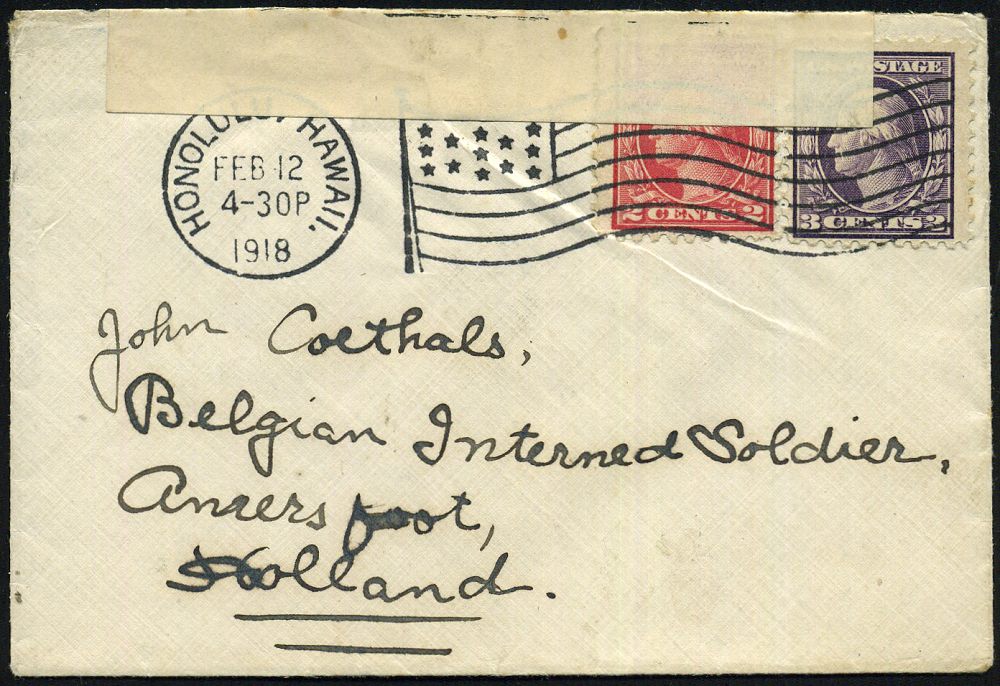 HONOLULU, HAWAII.
FEB 12
4-30P
1918
STAGE
2 CENTS 2
3 CENTS 3
John Coethals,
Belgian Interned Soldier,
Amersfoot,
Holland.